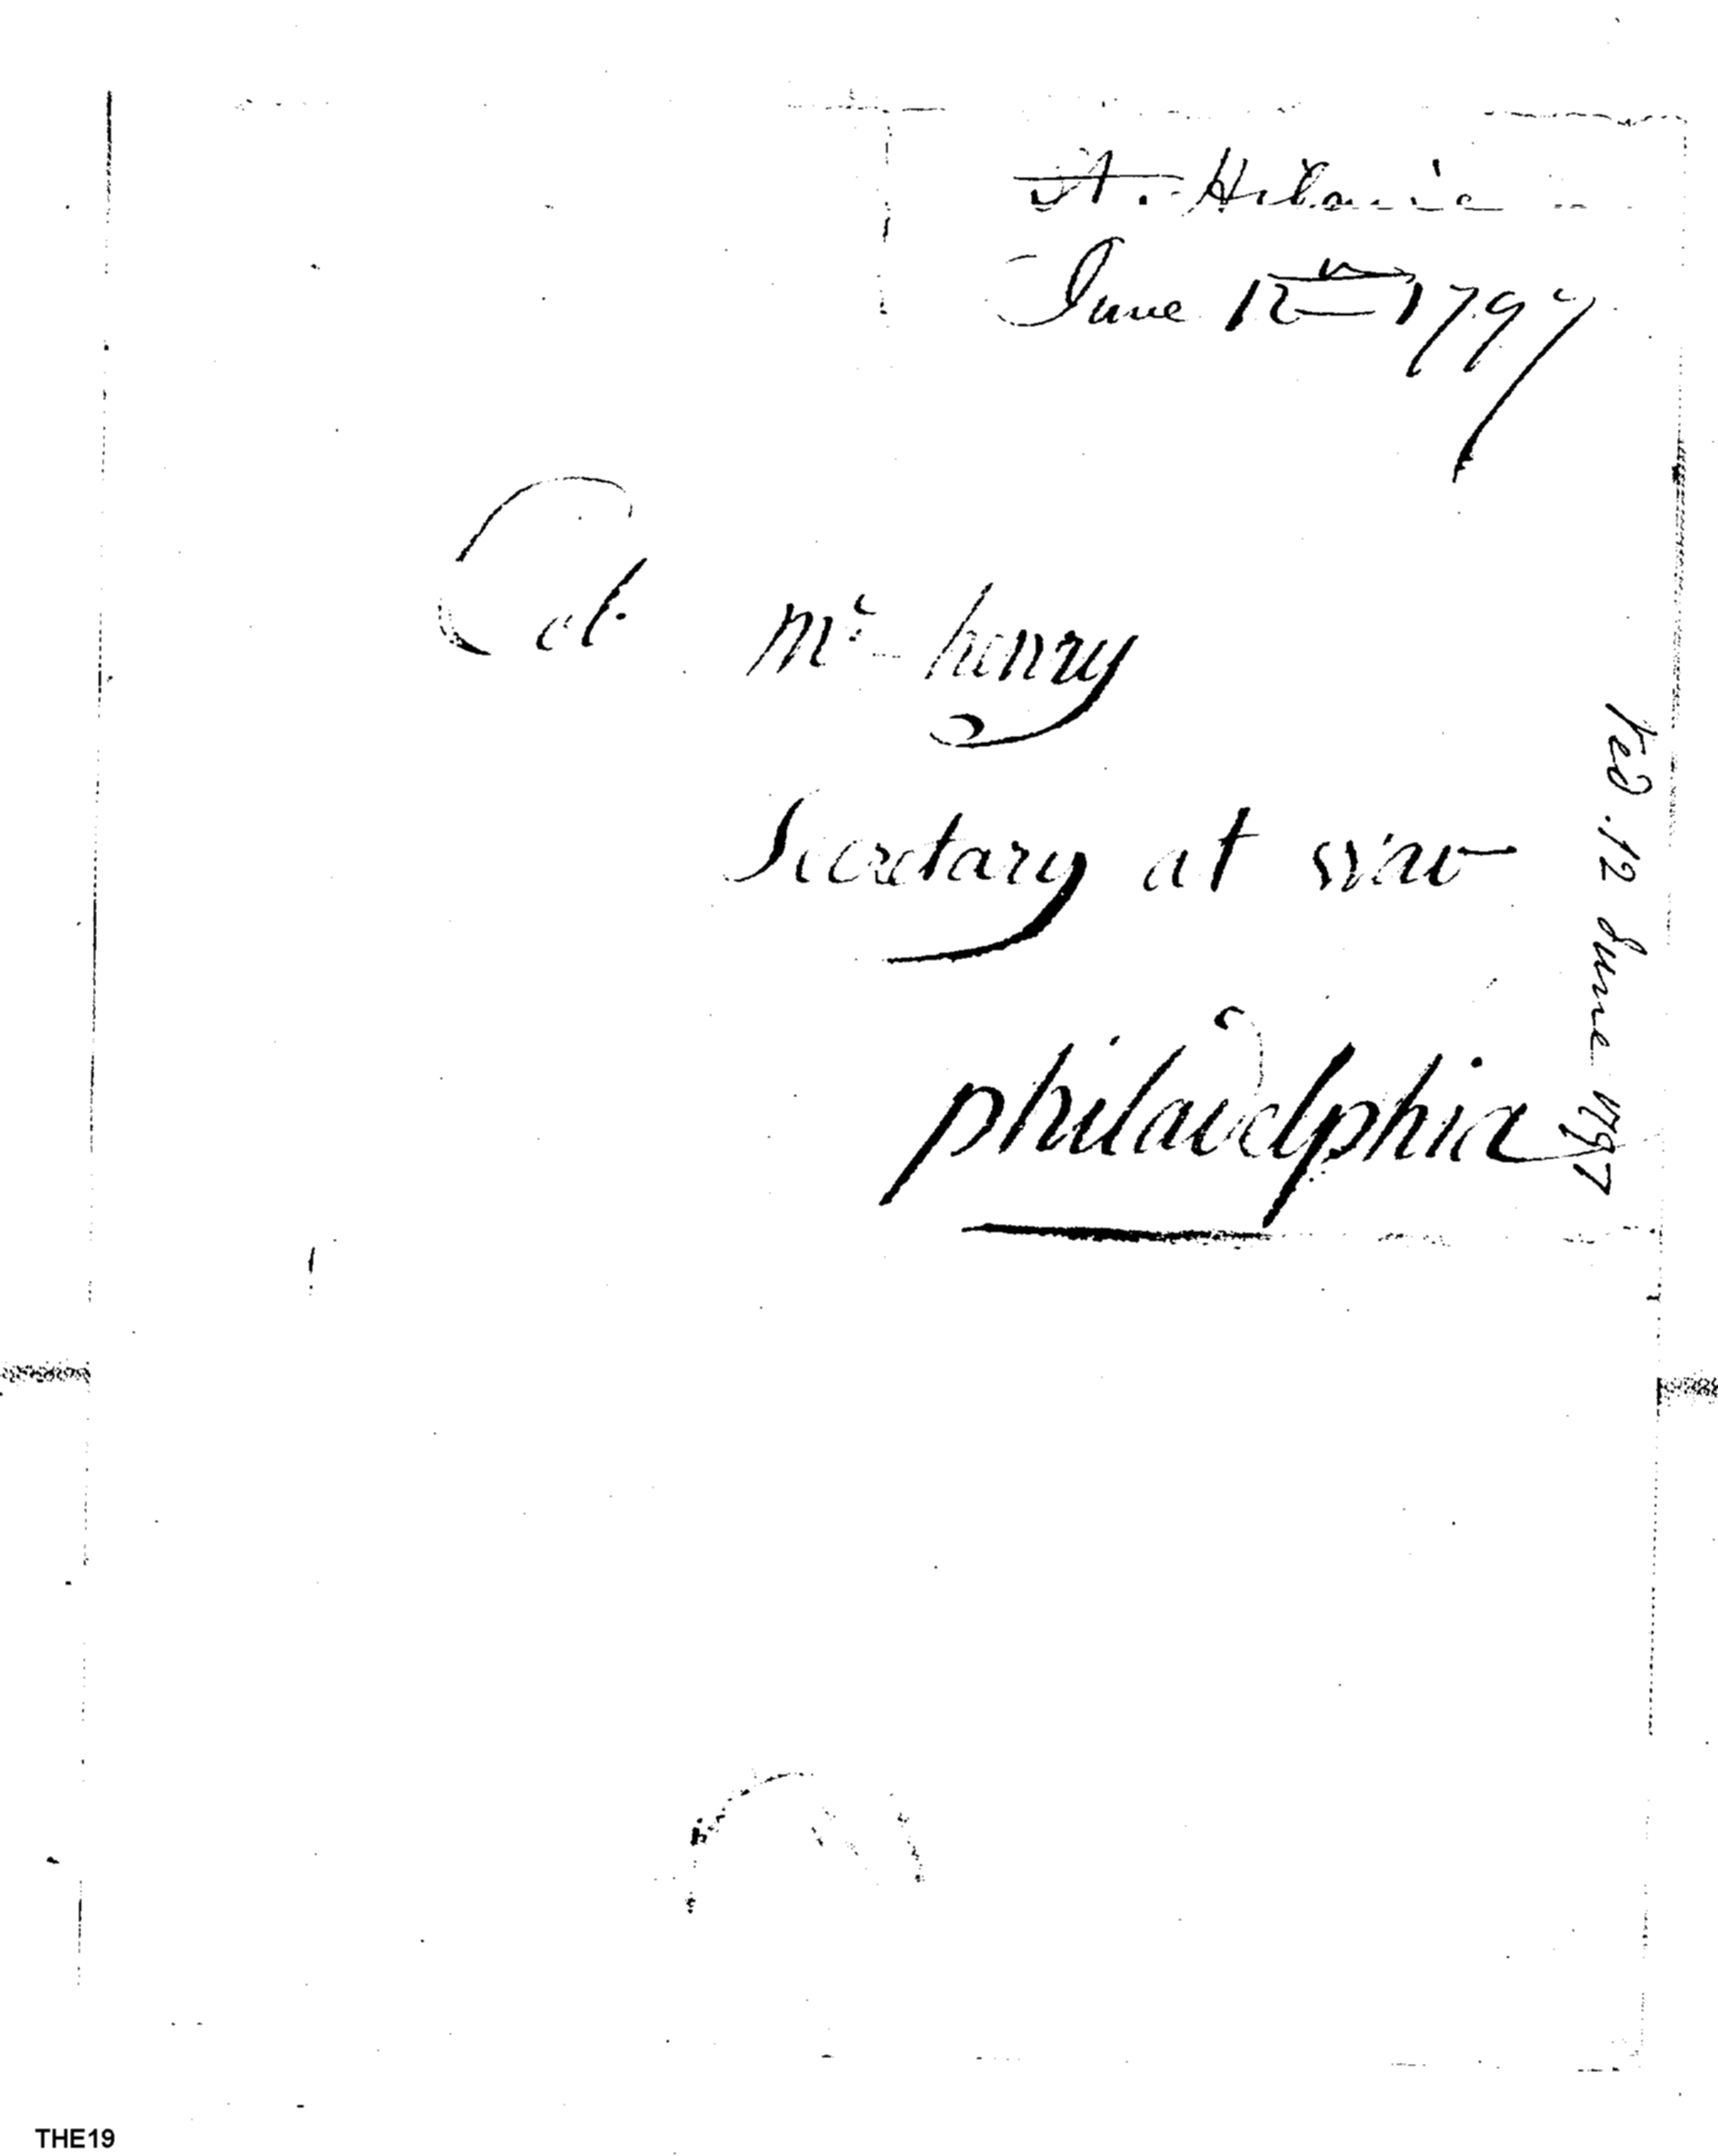 June 12th 1797
Col. Mc henry
Secretary at war
philadelphia
red. 12 June 1797
THE19